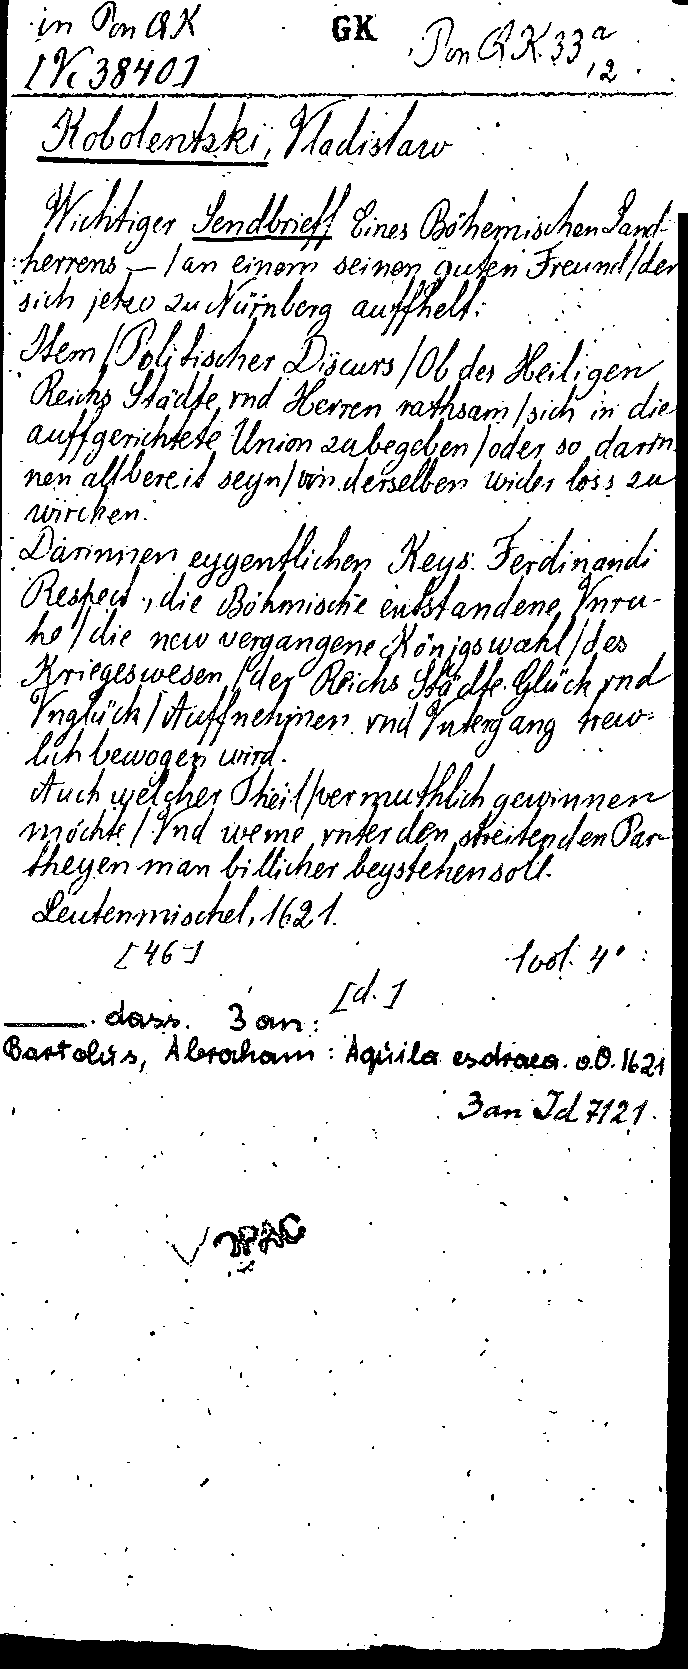 in Pon QK GK Pon QK 33 a
[Vc 3840] ,2
Kobolentzki, Vladislaw
Wichtiger Sendbrieff Eines Böhemischen Land-
herrens — / an einem seinen guten Freund / der
sich jetzo zu Nürnberg auffhelt:
Item / Politischer Discurs / Ob des Heiligen
Reichs Städte vnd Herren rathsam / sich in die
auffgerichtete Union zubegeben / oder so darin-
nen allbereit seyn / von derselben wider loss zu
wircken.
Darinnen eygentlichen Keys. Ferdinandi
Respect, die Böhmische entstandene Vnru-
he / die new vergangene Königswahl / des
Kriegeswesen / der Reichs Städte Glück vnd
Vnglück / Auffnehmen vnd Vntergang trew-
lich bewogen wird.
Auch welcher Theil / vermuthlich gewinnen
möchte / Vnd weme vnter den streitenden Par-
theyen man billicher beystehen soll.
Leutenmischel, 1621.
[46] 1 vol. 4°
[d.]
——. dass. 3 an:
Bartolus, Abraham: Aquila esdraea. o.O. 1621
3 an Id 7121.